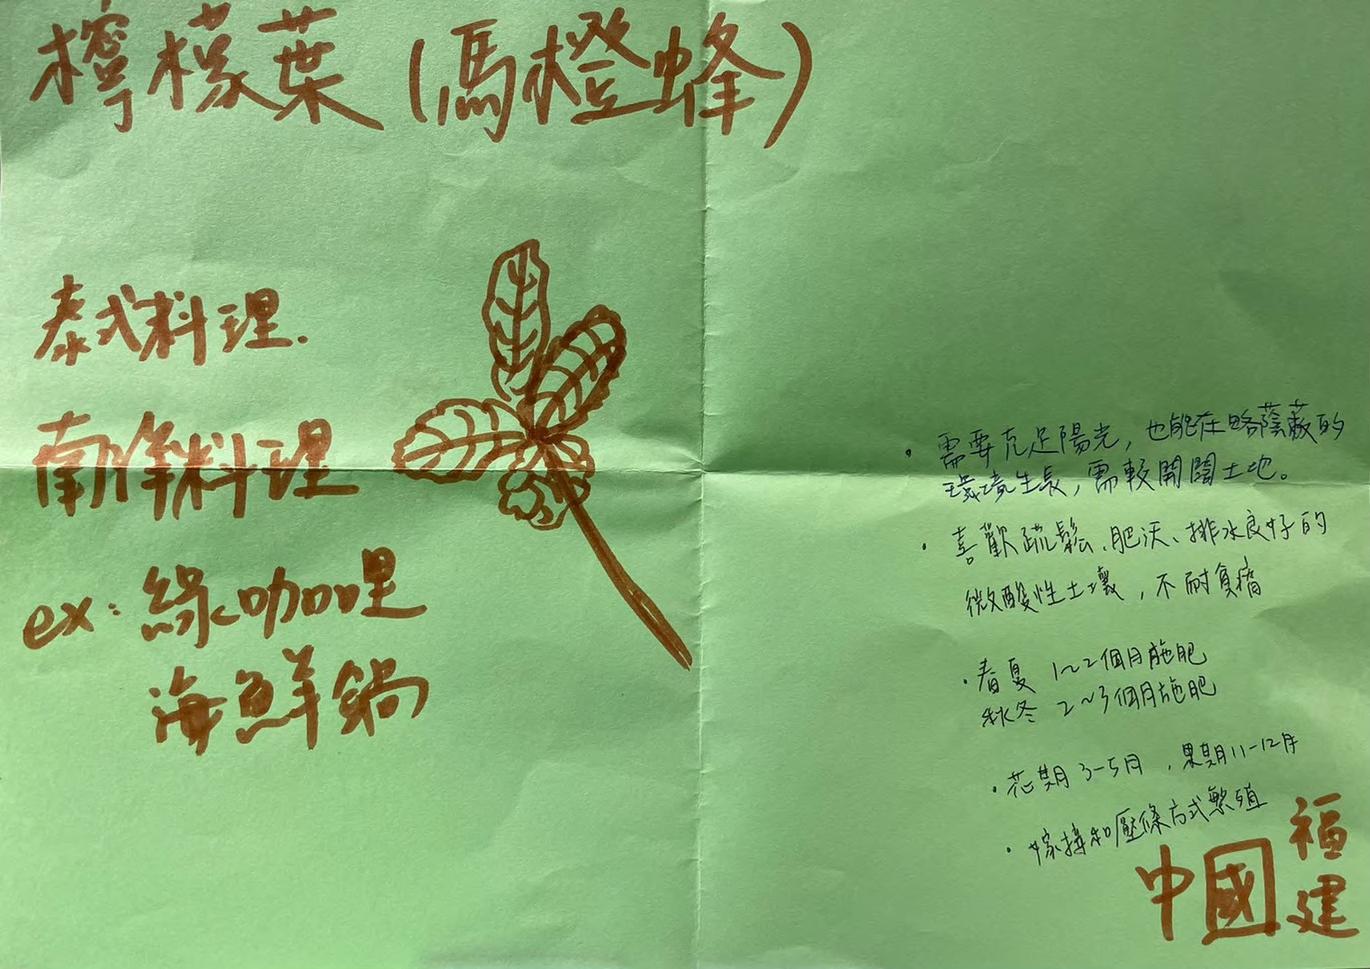 檸檬葉(馬橙蜂)
泰式料理.
南洋料理
ex: 綠咖哩
海鮮鍋
· 需要充足陽光, 也能在略蔭蔽的
環境生長, 需較開闊土地。
· 喜歡疏鬆、肥沃、排水良好的
微酸性土壤, 不耐貧瘠
· 春夏 1~2個月施肥
秋冬 2~3個月施肥
· 花期 3-5月, 果期11-12月
· 嫁接和壓條方式繁殖
中國福建